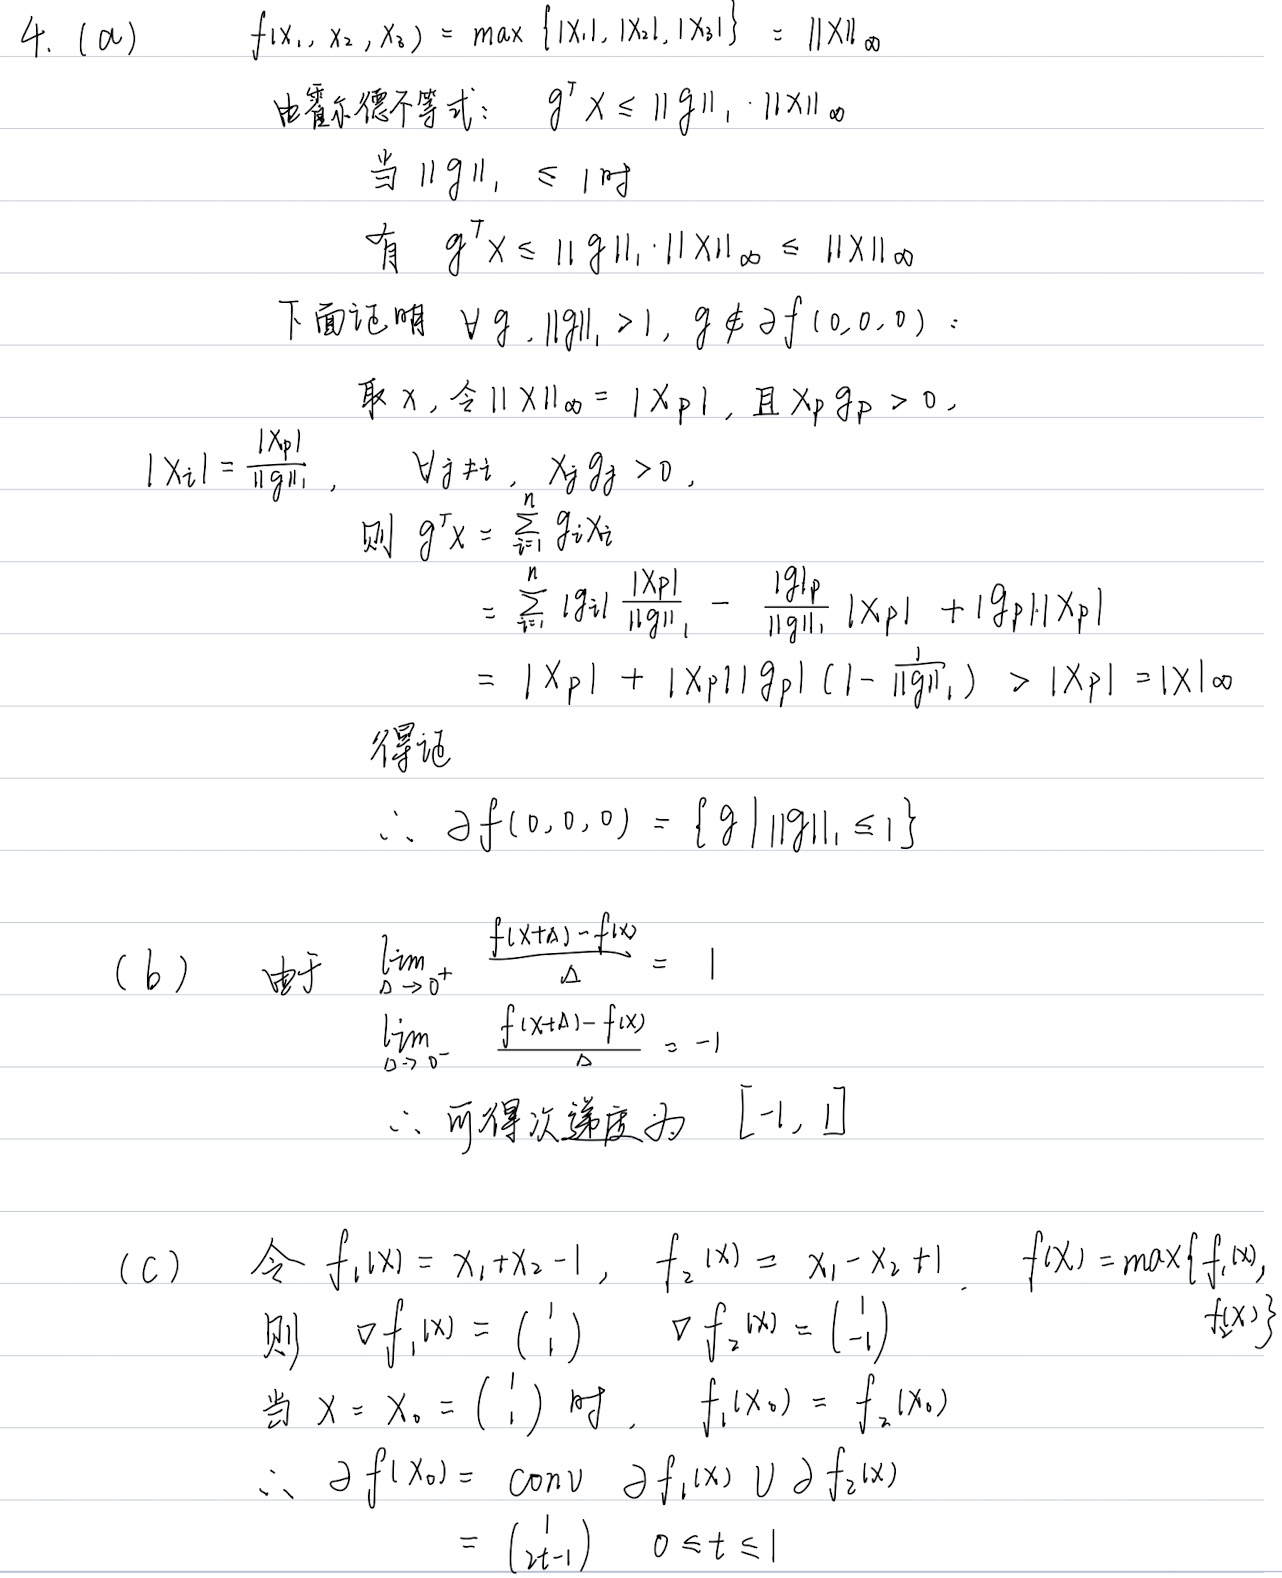 4. (a) f(x₁, x₂, x₃) = max {|x₁|, |x₂|, |x₃|} = ||x||∞
由霍尔德不等式: gᵀx ≤ ||g||₁·||x||∞
当 ||g||₁ ≤ 1时
有 gᵀx ≤ ||g||₁·||x||∞ ≤ ||x||∞
下面证明 ∀g, ||g||₁ > 1, g ∉ ∂f(0,0,0):
取x, 令||x||∞ = |xₚ|, 且xₚgₚ > 0,
|xᵢ| = |xₚ|/||g||₁, ∀j≠i, xⱼgⱼ > 0,
则 gᵀx = ∑ᵢ₌₁ⁿ gᵢxᵢ
= ∑ᵢ₌₁ⁿ |gᵢ| |xₚ|/||g||₁ - |g|ₚ/||g||₁ |xₚ| + |gₚ|·|xₚ|
= |xₚ| + |xₚ||gₚ|(1 - 1/||g||₁) > |xₚ| = |x|∞
得证
∴ ∂f(0,0,0) = {g | ||g||₁ ≤ 1}
(b) 由于 lim Δ→0⁺ (f(x+Δ) - f(x))/Δ = 1
lim Δ→0⁻ (f(x+Δ) - f(x))/Δ = -1
∴ 可得次递度为 [-1, 1]
(c) 令 f₁(x) = x₁+x₂-1, f₂(x) = x₁-x₂+1. f(x) = max{f₁(x),
f₂(x)}
则 ∇f₁(x) = (1 1) ∇f₂(x) = (1 -1)
当 x = x₀ = (1 1) 时, f₁(x₀) = f₂(x₀)
∴ ∂f(x₀) = conv ∂f₁(x) ∪ ∂f₂(x)
= (1 2t-1) 0 ≤ t ≤ 1